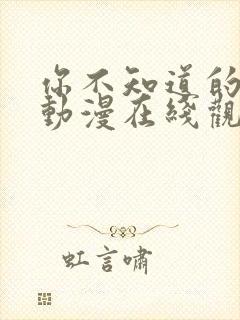 你不知道的
動漫在綫觀
虹言嘯